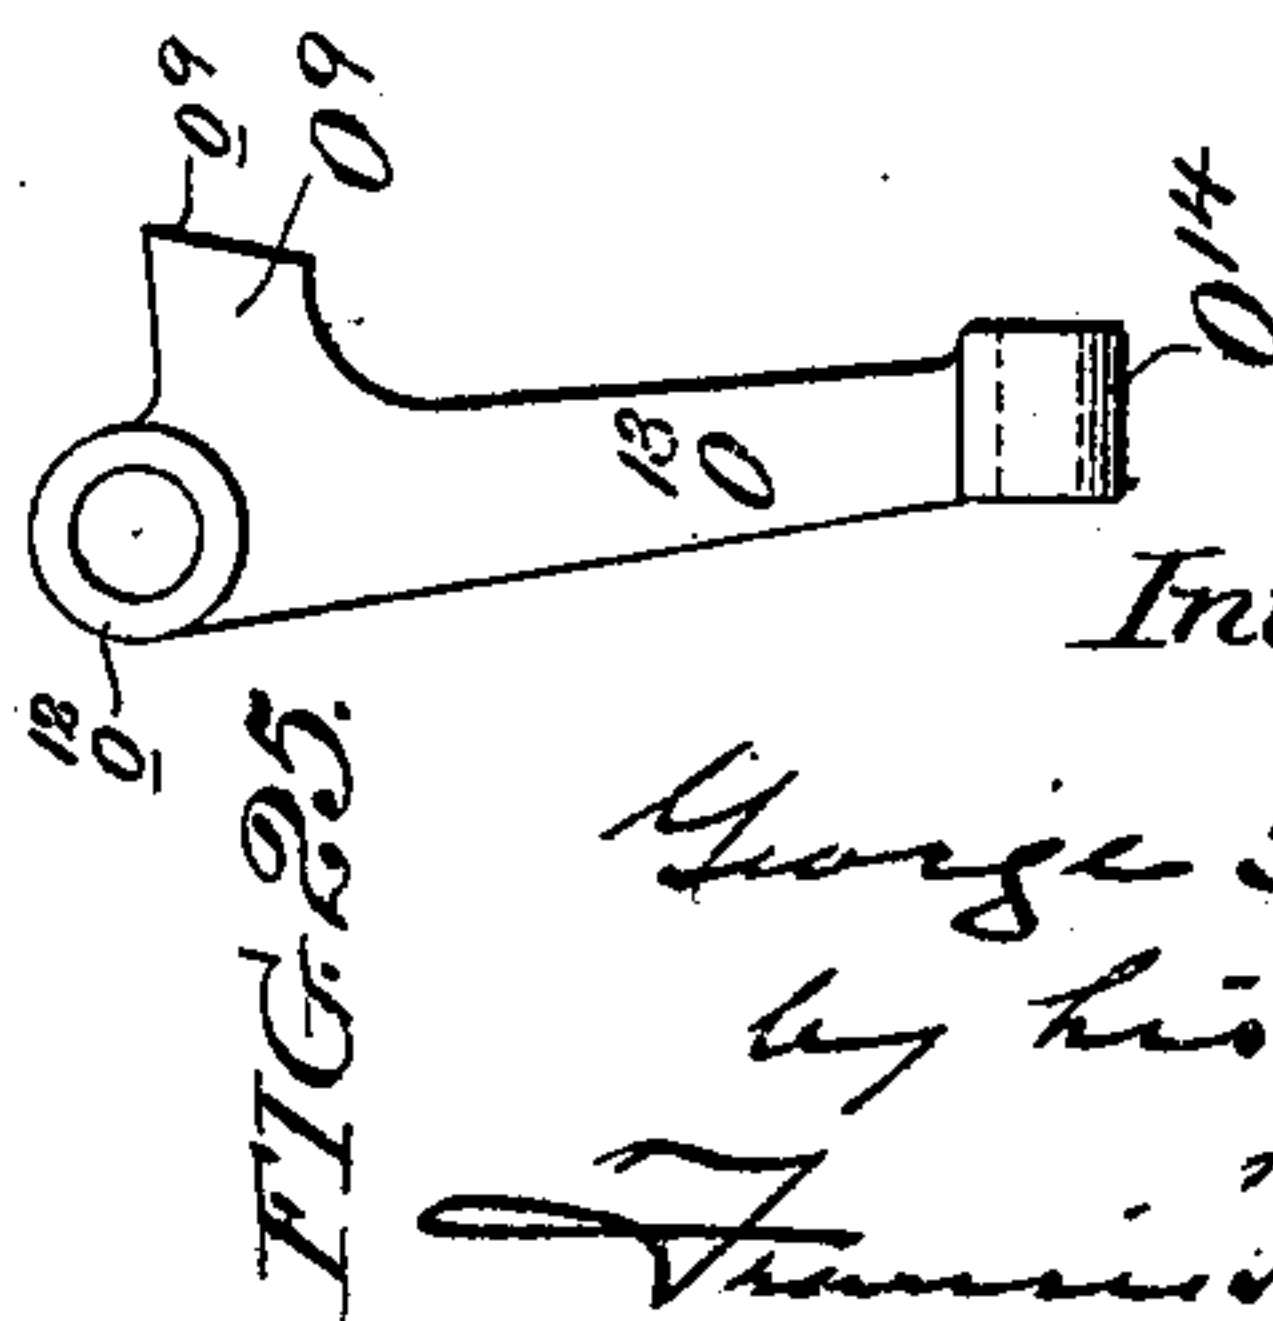 o⁹
O⁹
O¹⁴
O¹³
o¹²
FIG. 25.
George
by his